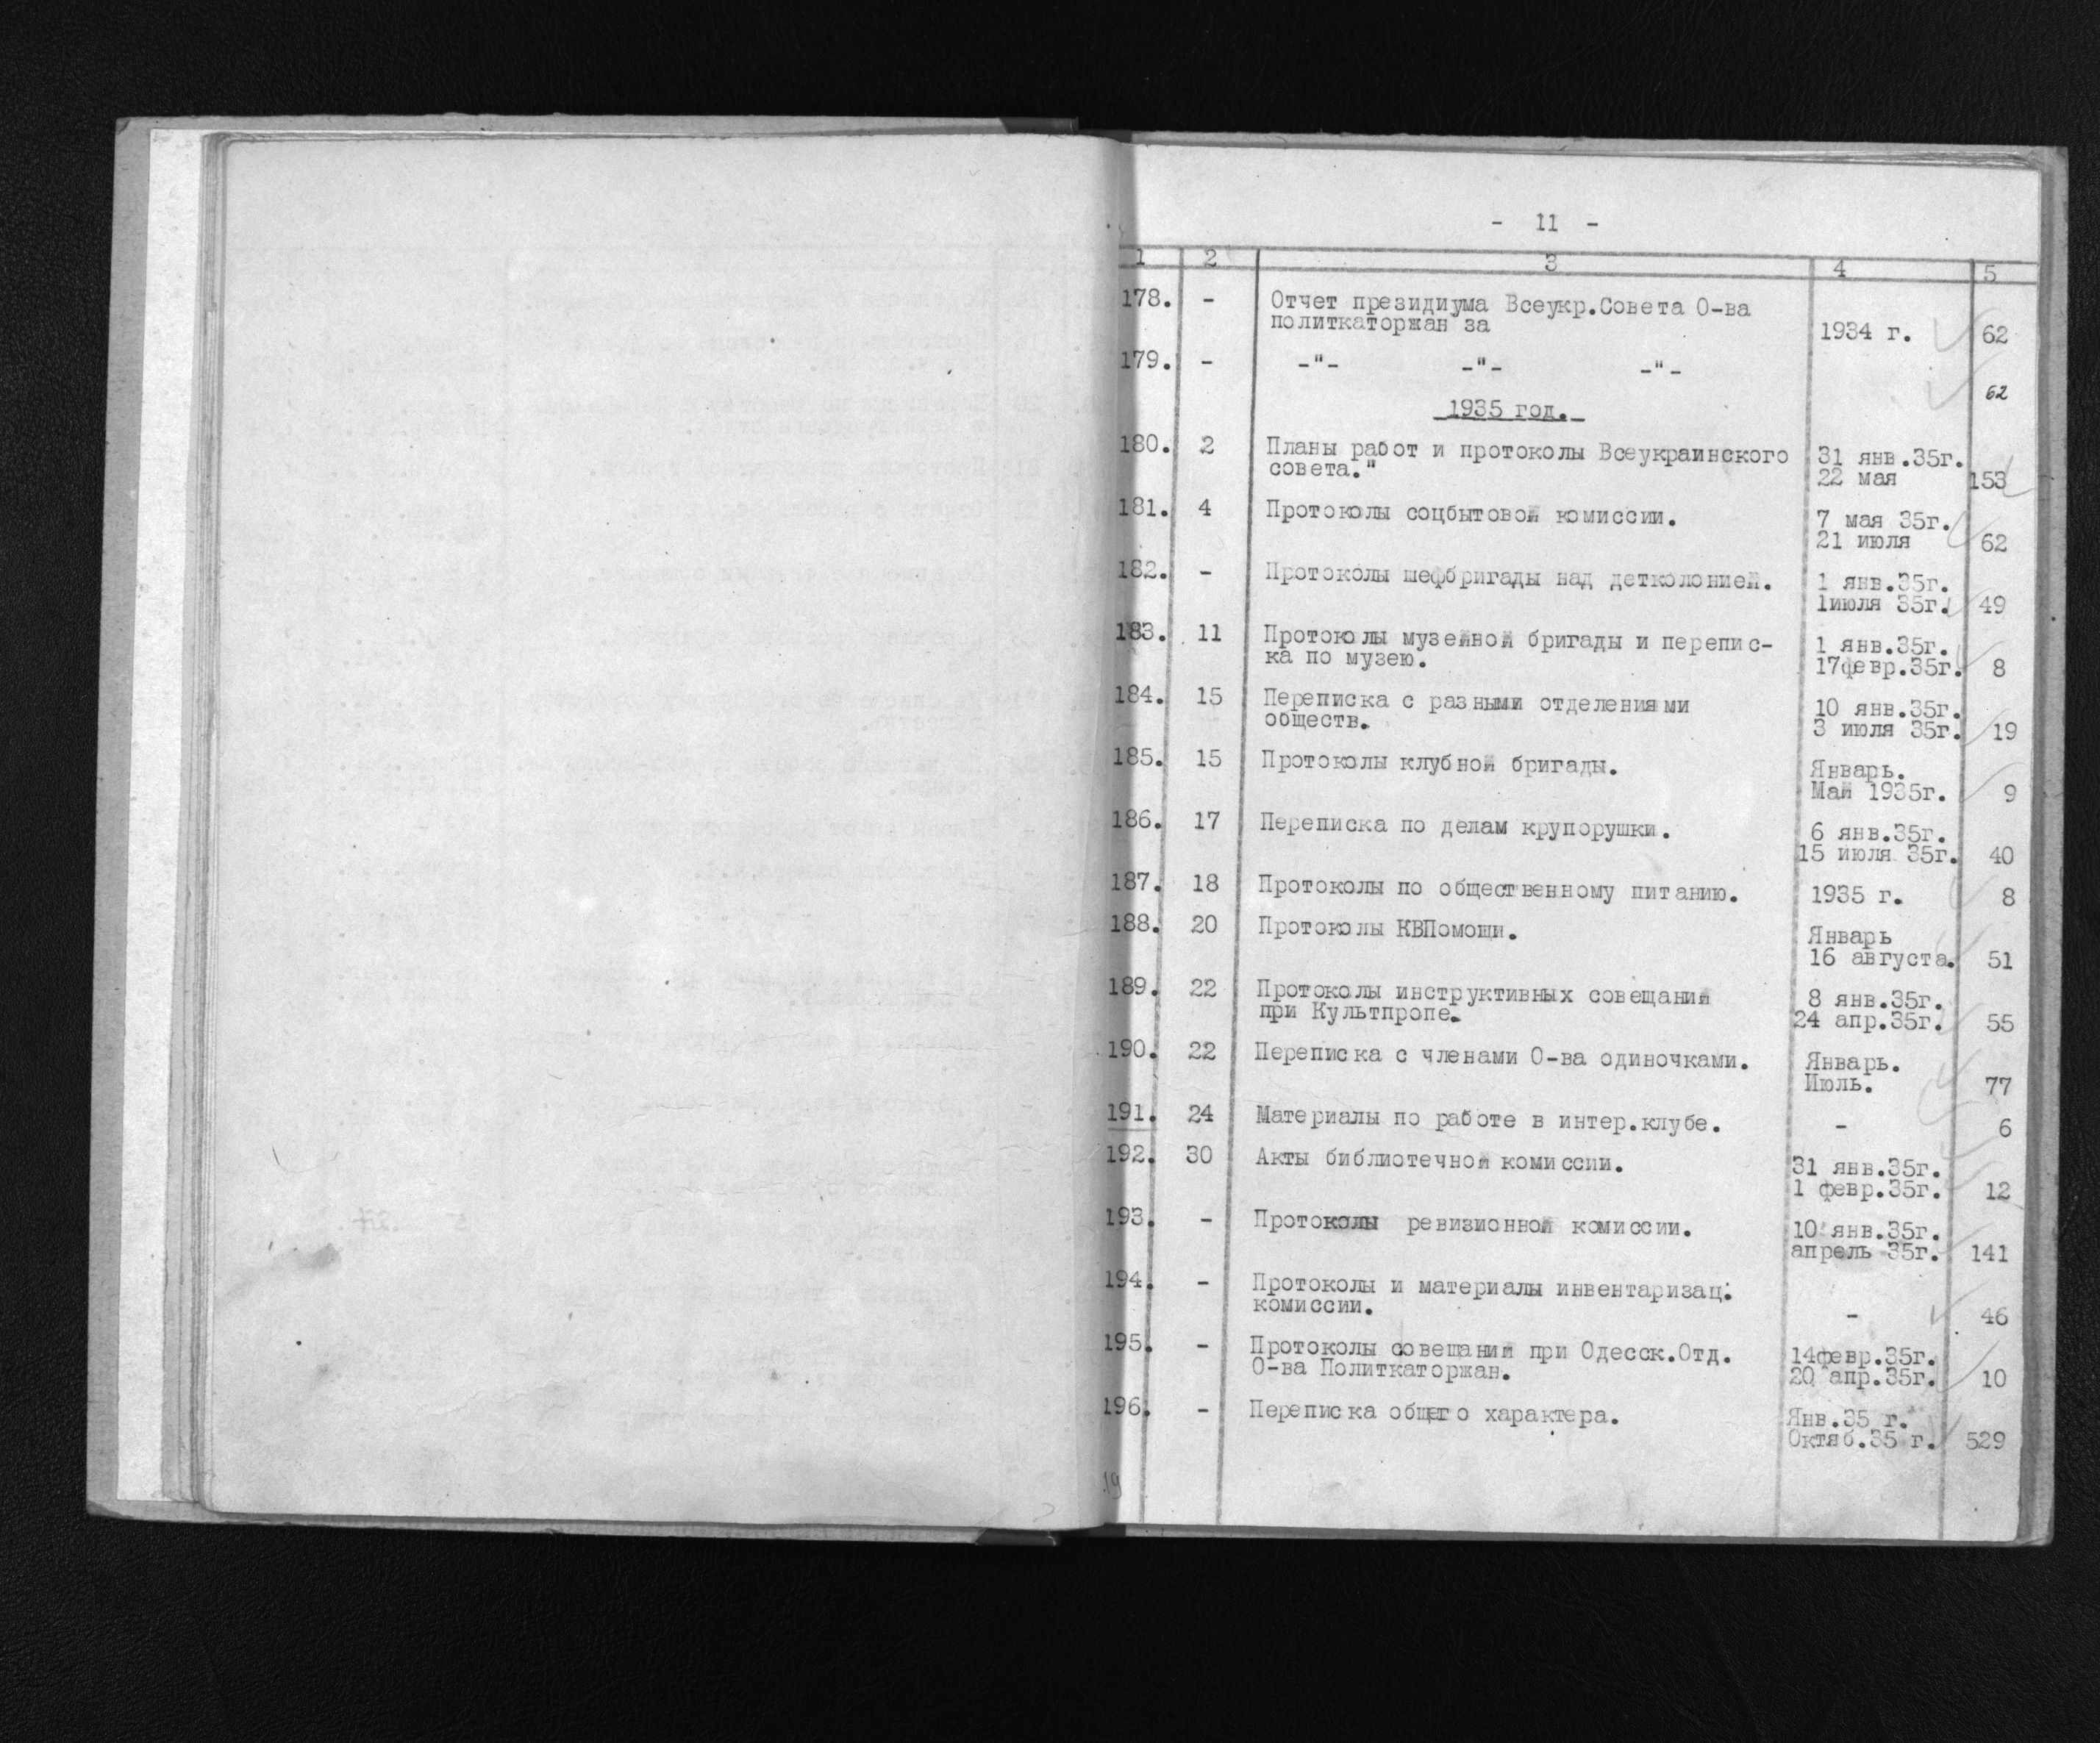 - 11 -
1 2 3 4 5
178. - Отчет президиума Всеукр.Совета О-ва
политкаторжан за 1934 г. 62
179. - -"- -"- -"- 62
1935 год.
180. 2 Планы работ и протоколы Всеукраинского 31 янв.35г.
совета." 22 мая 153
181. 4 Протоколы соцбытовой комиссии. 7 мая 35г.
21 июля 62
182. - Протоколы шефбригады над детколонией. 1 янв.35г.
1июля 35г. 49
183. 11 Протоколы музейной бригады и перепис- 1 янв.35г.
ка по музею. 17февр.35г. 8
184. 15 Переписка с разными отделениями 10 янв.35г.
обществ. 3 июля 35г. 19
185. 15 Протоколы клубной бригады. Январь.
Май 1935г. 9
186. 17 Переписка по делам крупорушки. 6 янв.35г.
15 июля 35г. 40
187. 18 Протоколы по общественному питанию. 1935 г. 8
188. 20 Протоколы КВПомощи. Январь
16 августа. 51
189. 22 Протоколы инструктивных совещаний 8 янв.35г.
при Культпропе. 24 апр.35г. 55
190. 22 Переписка с членами О-ва одиночками. Январь.
Июль. 77
191. 24 Материалы по работе в интер.клубе. - 6
192. 30 Акты библиотечной комиссии. 31 янв.35г.
1 февр.35г. 12
193. - Протоколы ревизионной комиссии. 10 янв.35г.
апрель 35г. 141
194. - Протоколы и материалы инвентаризац.
комиссии. - 46
195. - Протоколы совещаний при Одесск.Отд. 14февр.35г.
О-ва Политкаторжан. 20 апр.35г. 10
196. - Переписка общего характера. Янв.35 г.
Октяб.35 г. 529
19